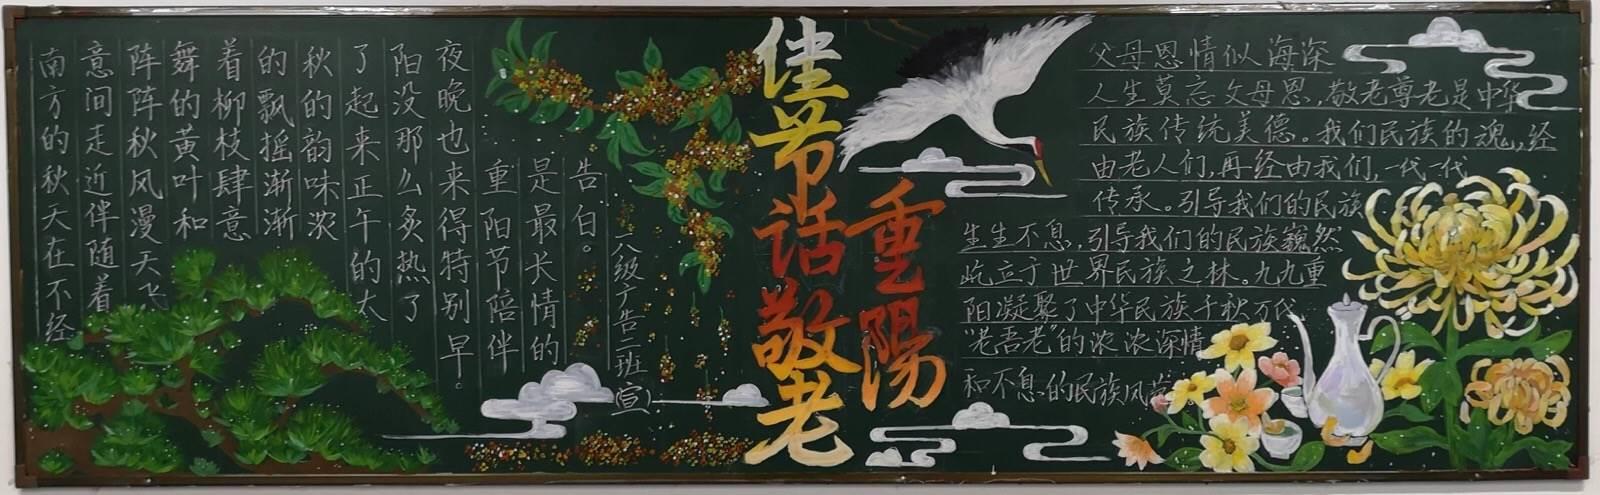 南方的秋天在不经
意间走近伴随着
阵阵秋风漫天飞
舞的黄叶和
着柳枝肆意
的飘摇渐渐
秋的韵味浓
了起来正午的太
阳没那么炙热了
夜晚也来得特别早。
重阳节陪伴
是最长情的
告白。
八级广告二班(宣)
佳节话敬老
重陽
父母恩情似海深
人生莫忘父母恩,敬老尊老是中华
民族传统美德。我们民族的魂,经
由老人们,再经由我们,一代一代
传承。引导我们的民族
生生不息,引导我们的民族巍然
屹立于世界民族之林。九九重
阳凝聚了中华民族千秋万代
"老吾老"的浓浓深情
和不息的民族风